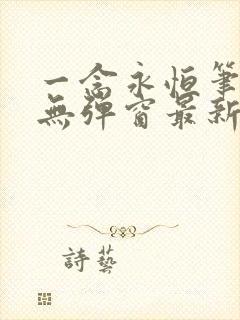 一念永恒筆
無彈窗最新
詩藝